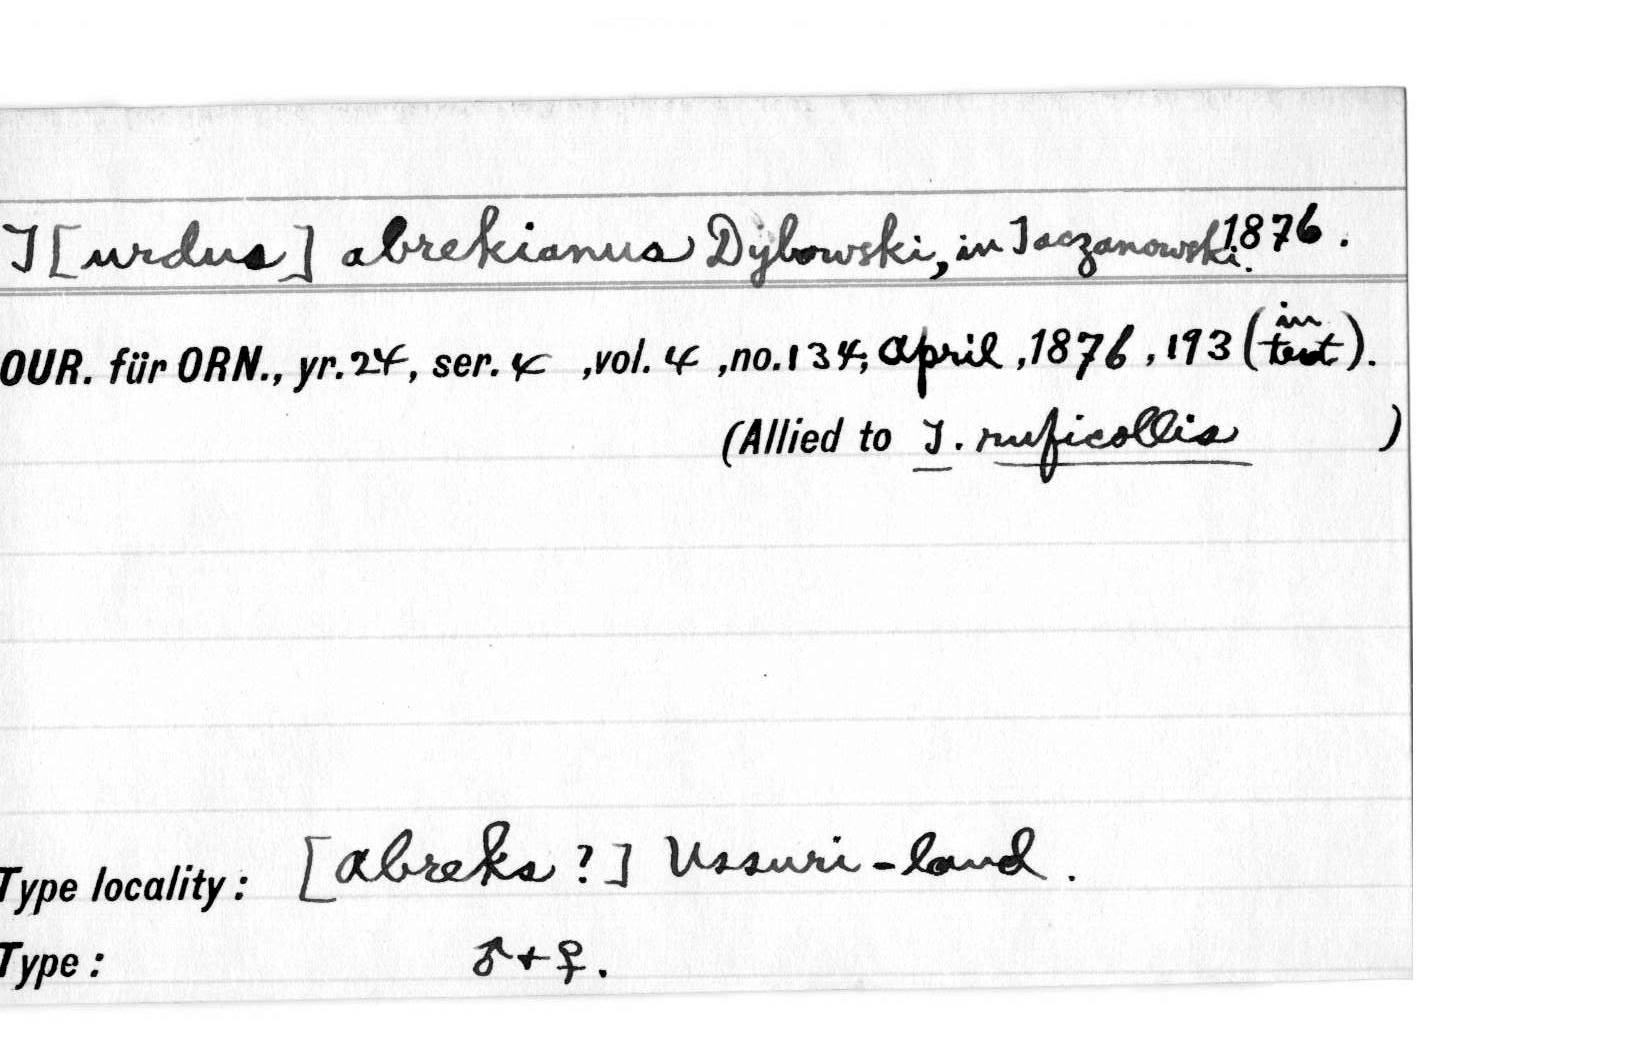 T[urdus] abrekianus Dybowski, in Taczanowski. 1876.
OUR. für ORN., yr. 24, ser. 4 , vol. 4 , no. 134, April , 1876 , 193 (in text).
(Allied to T. ruficollis )
Type locality: [Abreks ?] Ussuri-land.
Type: ♂ + ♀.